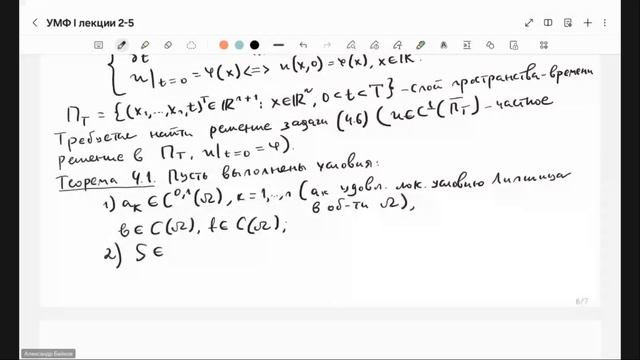 УМФ I лекции 2-5
∂t
u|t=0 = φ(x) <=> u(x,0) = φ(x), x∈ℝⁿ.
Π_T = {(x₁,...,xₙ,t)ᵀ∈ℝⁿ⁺¹: x∈ℝⁿ, 0<t<T} - слой пространства-времени
Требуется найти решение задачи (4.6) (u∈C¹(Π̅_T) - частное
решение в Π_T, u|t=0 = φ).
Теорема 4.1. Пусть выполнены условия:
1) aₖ∈C⁰,¹(Ω), k=1,...,n (aₖ удовл. лок. условию Липшица
в об-ти Ω),
b∈C(Ω), f∈C(Ω);
2) S∈
6/7
Александр Байков